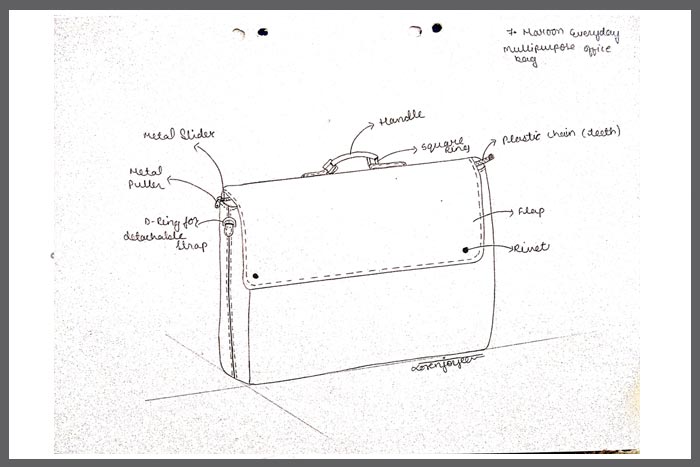 7. Maroon Everyday
Multipurpose office
bag
Handle
Metal Slider
Square
Ring
Plastic chain (teeth)
Metal
Puller
D-Ring for
detachable
Strap
Flap
Rivet